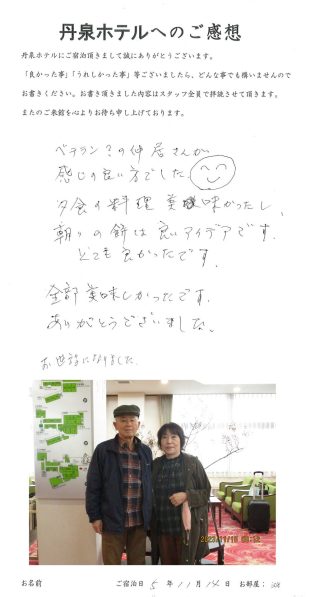 丹泉ホテルへのご感想
丹泉ホテルにご宿泊頂きまして誠にありがとうございます。
「良かった事」「うれしかった事」等ございましたら、どんな事でも構いませんので
お書きください。お書き頂きました内容はスタッフ全員で拝読させて頂きます。
またのご来館を心よりお待ち申し上げております。
ベテラン?の仲居さんが
感じの良い方でした
夕食の料理 美味かったし、
朝の餅は良いアイデアです。
とても良かったです。
全部美味しかったです。
ありがとうございました。
お世話になりました。
お名前
ご宿泊日 5 年 11 月 14 日 お部屋: